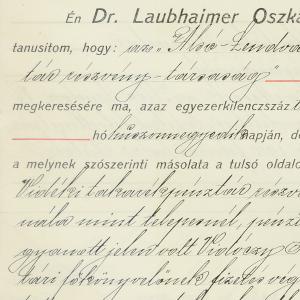 Én Dr. Laubhaimer Oszka
tanusítom, hogy: az „Alsó-Lendva
tár részvény-társaság"
megkeresésére ma, azaz egyezerkilenczszáz
hó huszonnegyedik napján, d
a melynek szószerinti másolata a tulsó oldalo
Vidéki takarékpénztár részv
nála mint telepesnél, pénz
gyanott jelen volt Vidoczy
tári főkönyvelőnek fizetés vég